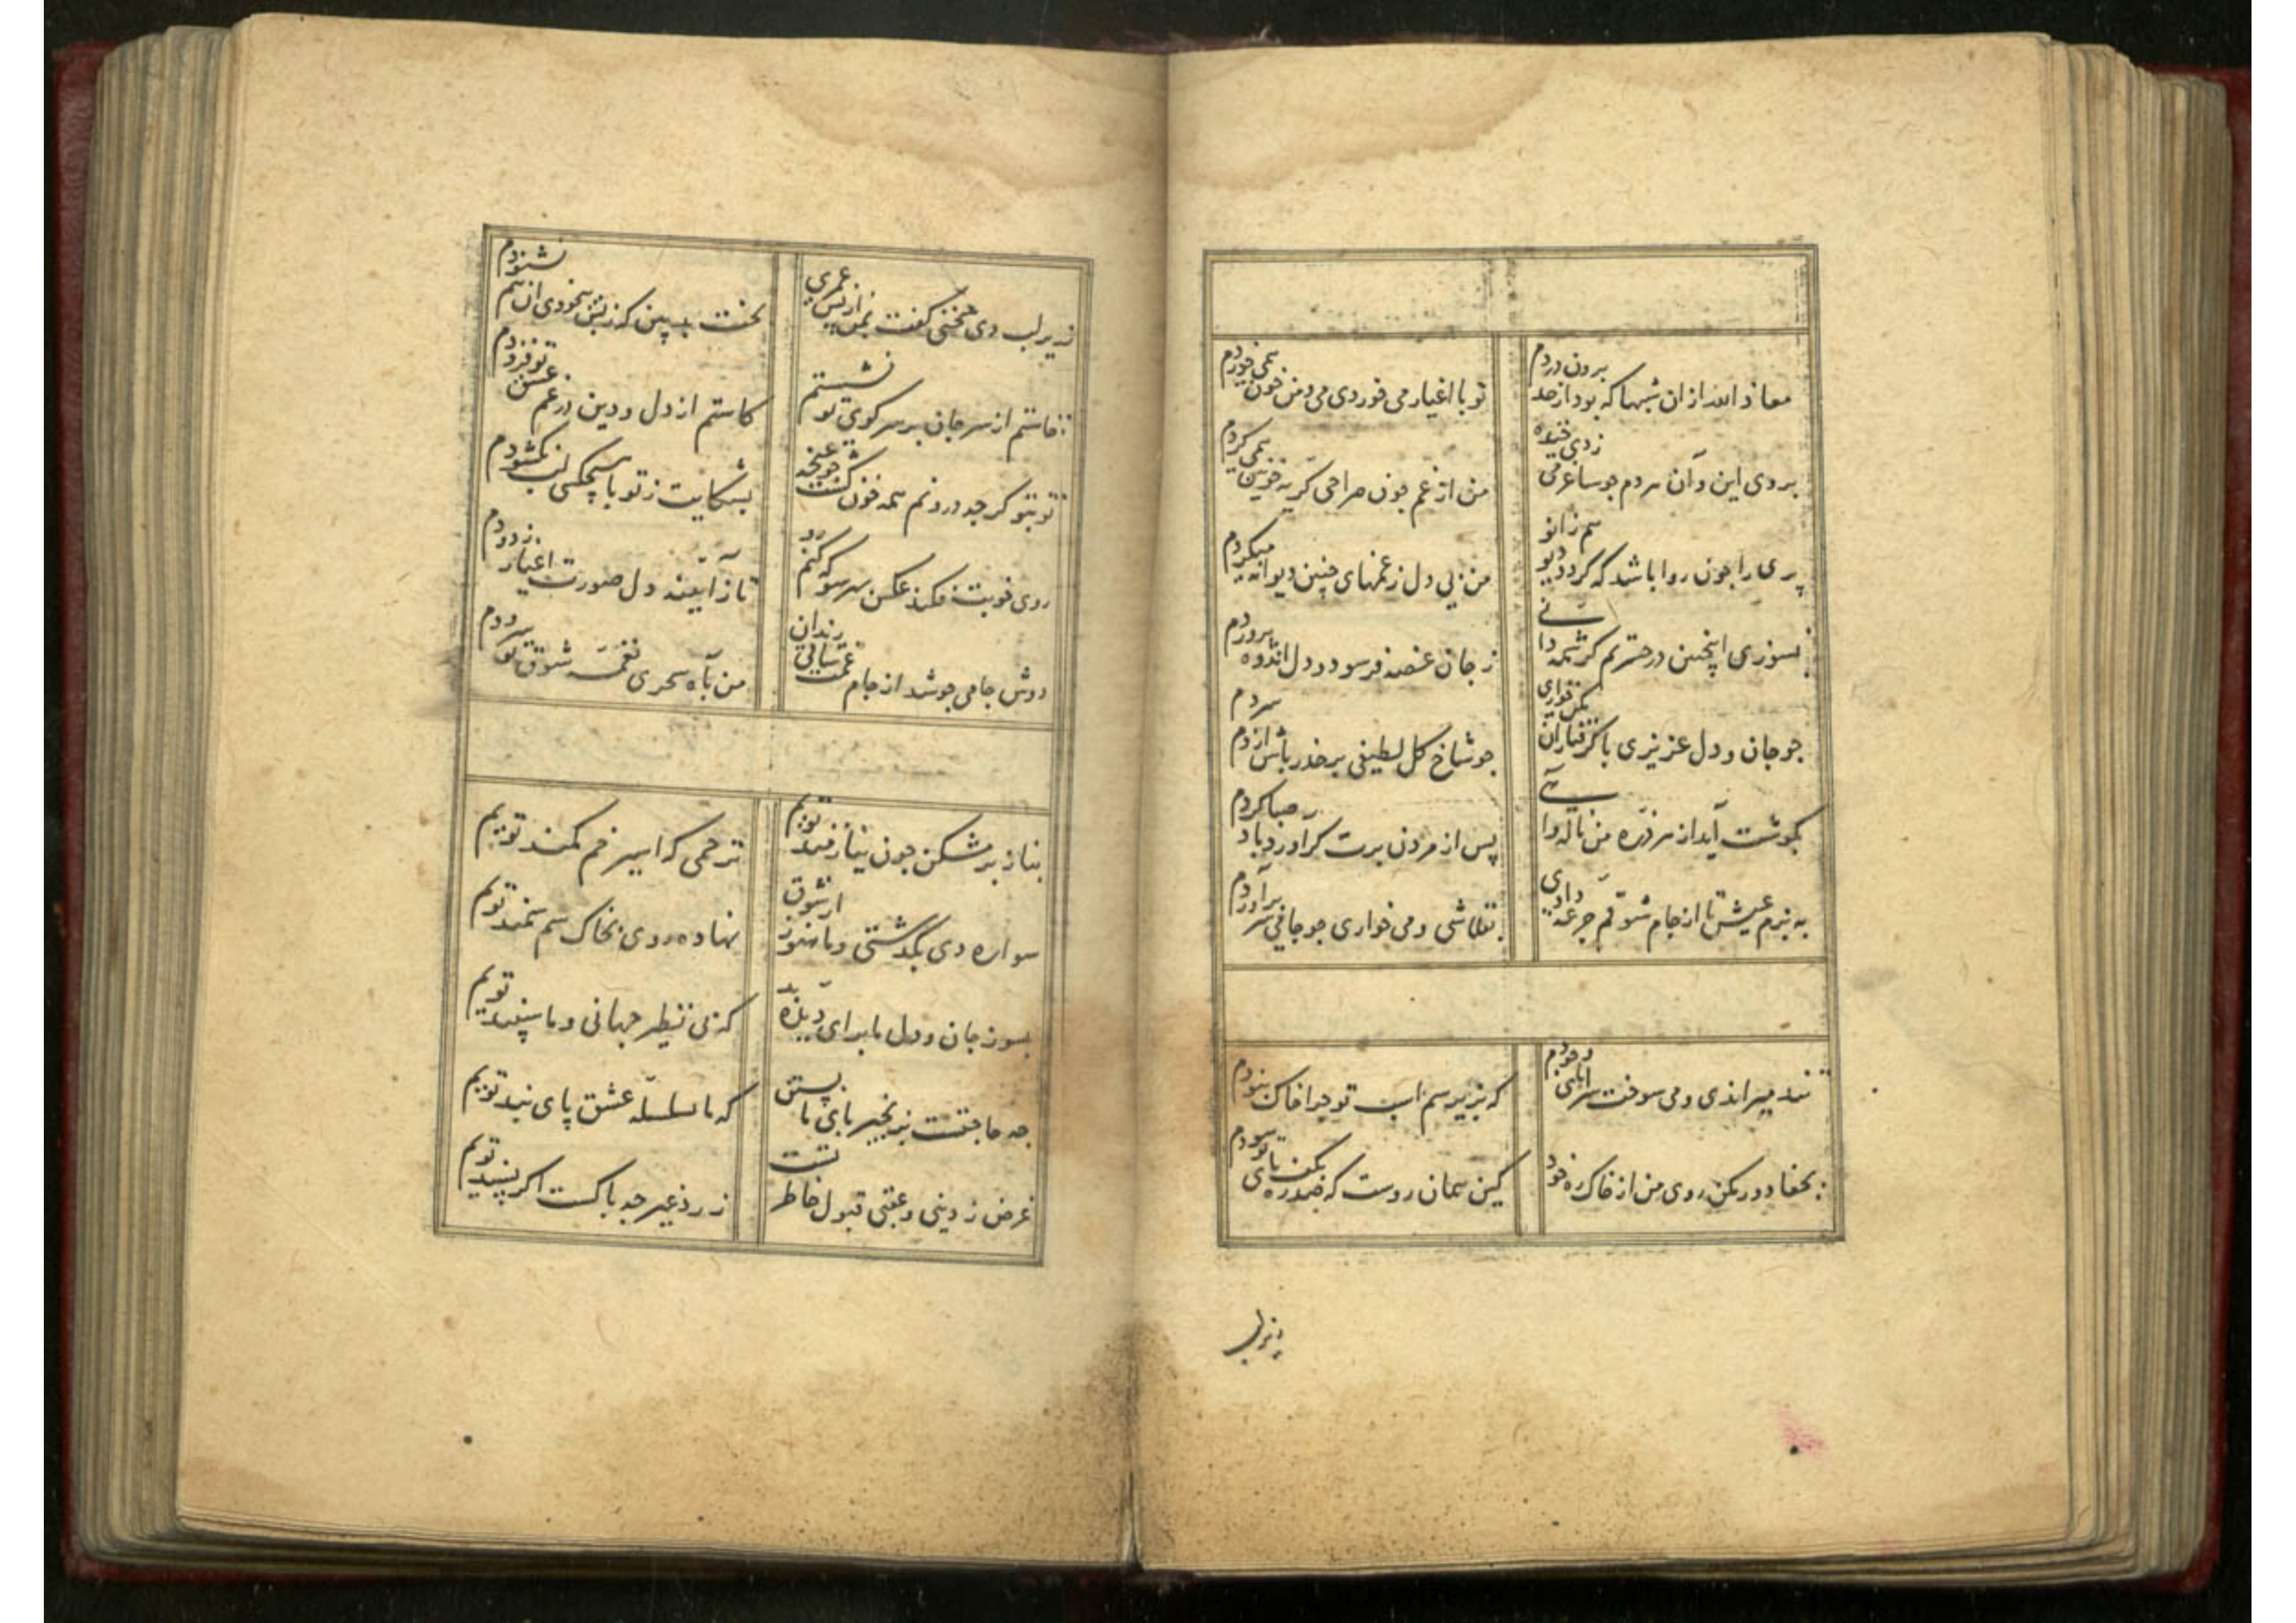 معاذ الله ازان شبها که بود از حد برون دردم
تو با اغیار می خوردی می و من خون همی خوردم
بروی این و آن هر دم جو ساغر می زدی خنده
من از غم جون صراحی کریه خونین همی کردم
پری را جون روا باشد که کردد دیو هم زانو
من بی دل ز غمهای چنین دیوانه میکردم
بسوزی اینچنین در حسرتم کر شمه دانی
ز جان غصه فرسود و دل اندوه پروردم
جو جان و دل عزیزی با کرفتاران مکن خواری
جو شاخ کل لطیفی بر حذر باش از دم سردم
بکوشت آید از هر ذره من ناله وا
پس از مردن برت کر اورد باد صبا کردم
به بزم عیش تا از جام شوقم جرعه دادی
بقلاشی و می خواری جو جامی سر برآوردم
تند میراندی و می سوخت سراپای وجودم
که بزیر سم اسب تو جرا خاک نبودم
بجفا دور مکن روی من از خاک ره خود
کین همان روست که صد ره بکف پای تو سودم
زیر لب
زیر لب دی سخنی کفت پس از عمری
بخت بد بین که ز بس بیخودی ان هم نشنودم
خاستم از سر جان بر سر کوی تو نشستم
کاستم از دل و دین در غم عشق تو فزودم
تو بتو کرجه درونم همه خون کشت جو غنجه
بشکایت ز تو با هیچکسی لب نکشودم
روی خوبت فکند عکس بهر سو که کنم رو
تا ز آیینه دل صورت اغیار زدودم
دوش جامی جو شد از جام غمت ساقی رندان
من بآه سحری نغمه شوق تو سرودم
بناز بر مشکن جون نیازمند توییم
ترحمی که اسیر خم کمند توییم
سواره دی بکدشتی و ما هنوز از شوق
نهاده روی بخاک سم سمند توییم
بسوز جان و دل ما برای دیده بد
که بی نظیر جهانی و ما سپند توییم
جه حاجتست بزنجیر پای ما بستن
که ما بسلسله عشق پای بند توییم
غرض ز دینی و عقبی قبول خاطر تست
ز رد غیر جه باکست اکر پسند توییم